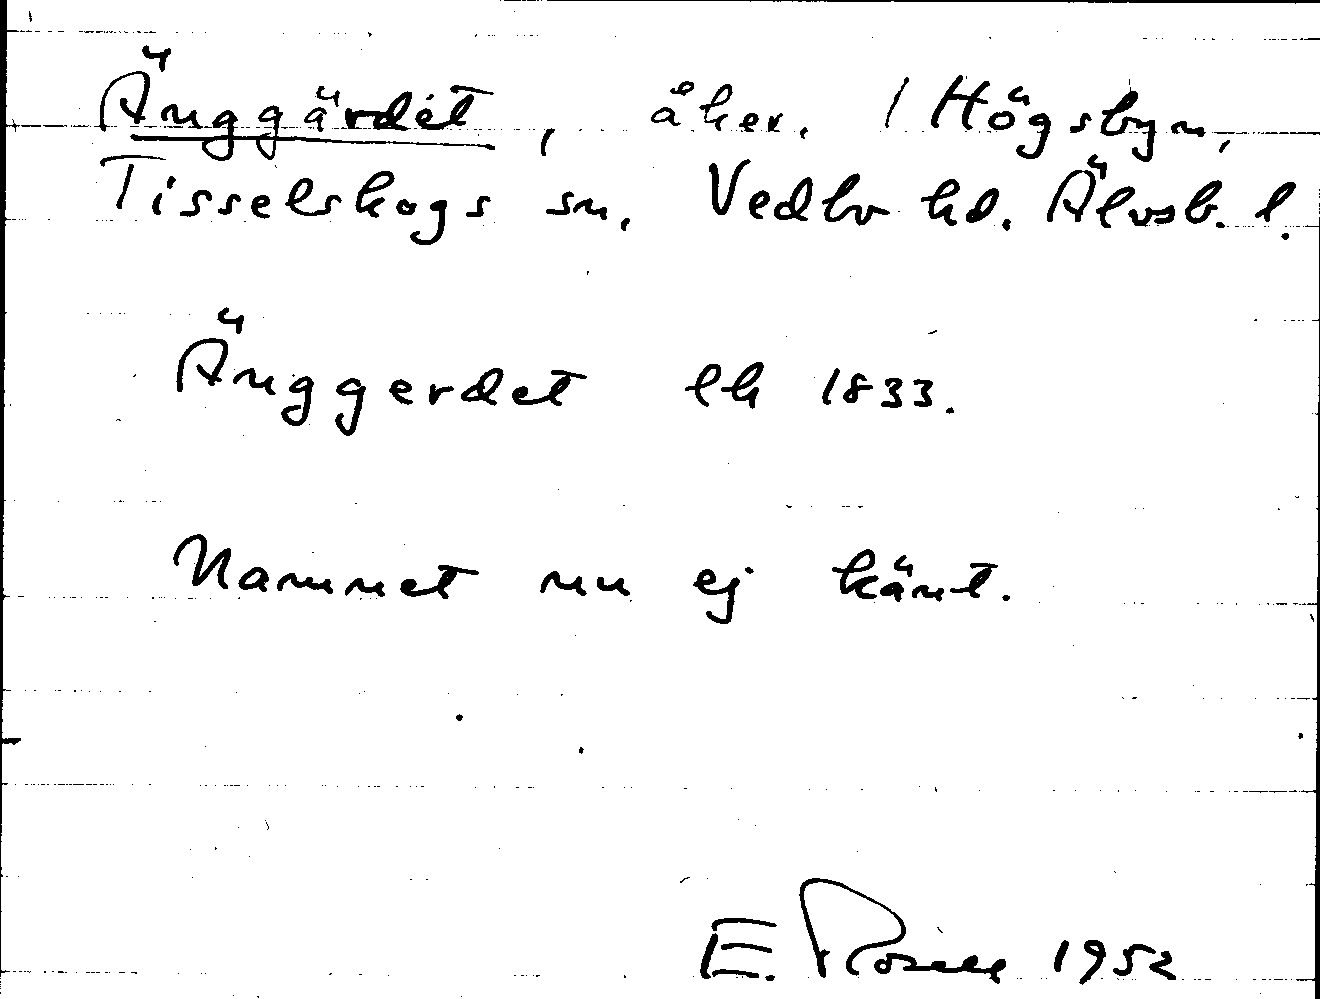 Änggärdet, åker. 1 Högsbyn,
Tisselskogs sn, Vedbo hd. Älvsb. l.
Änggerdet lh 1833.
Namnet nu ej känt.
E. Rosell 1952